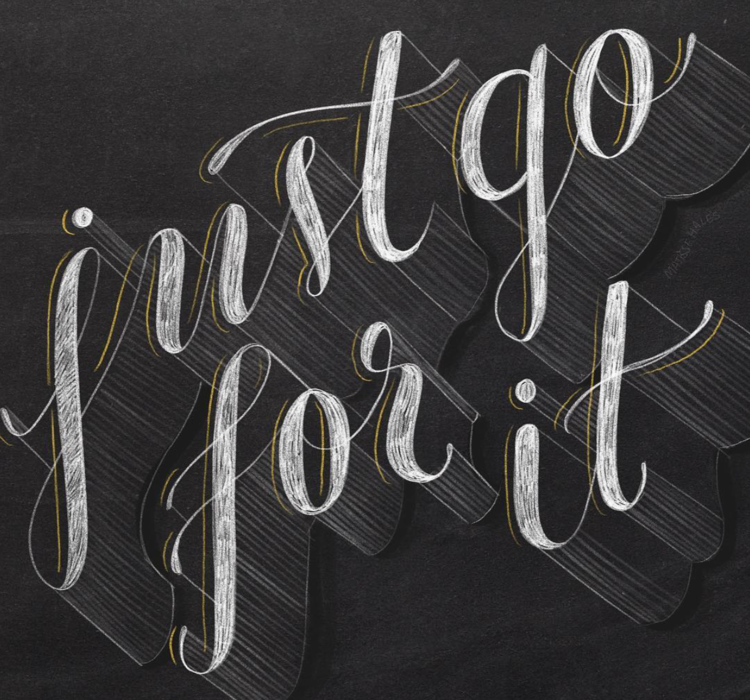 just go
for it